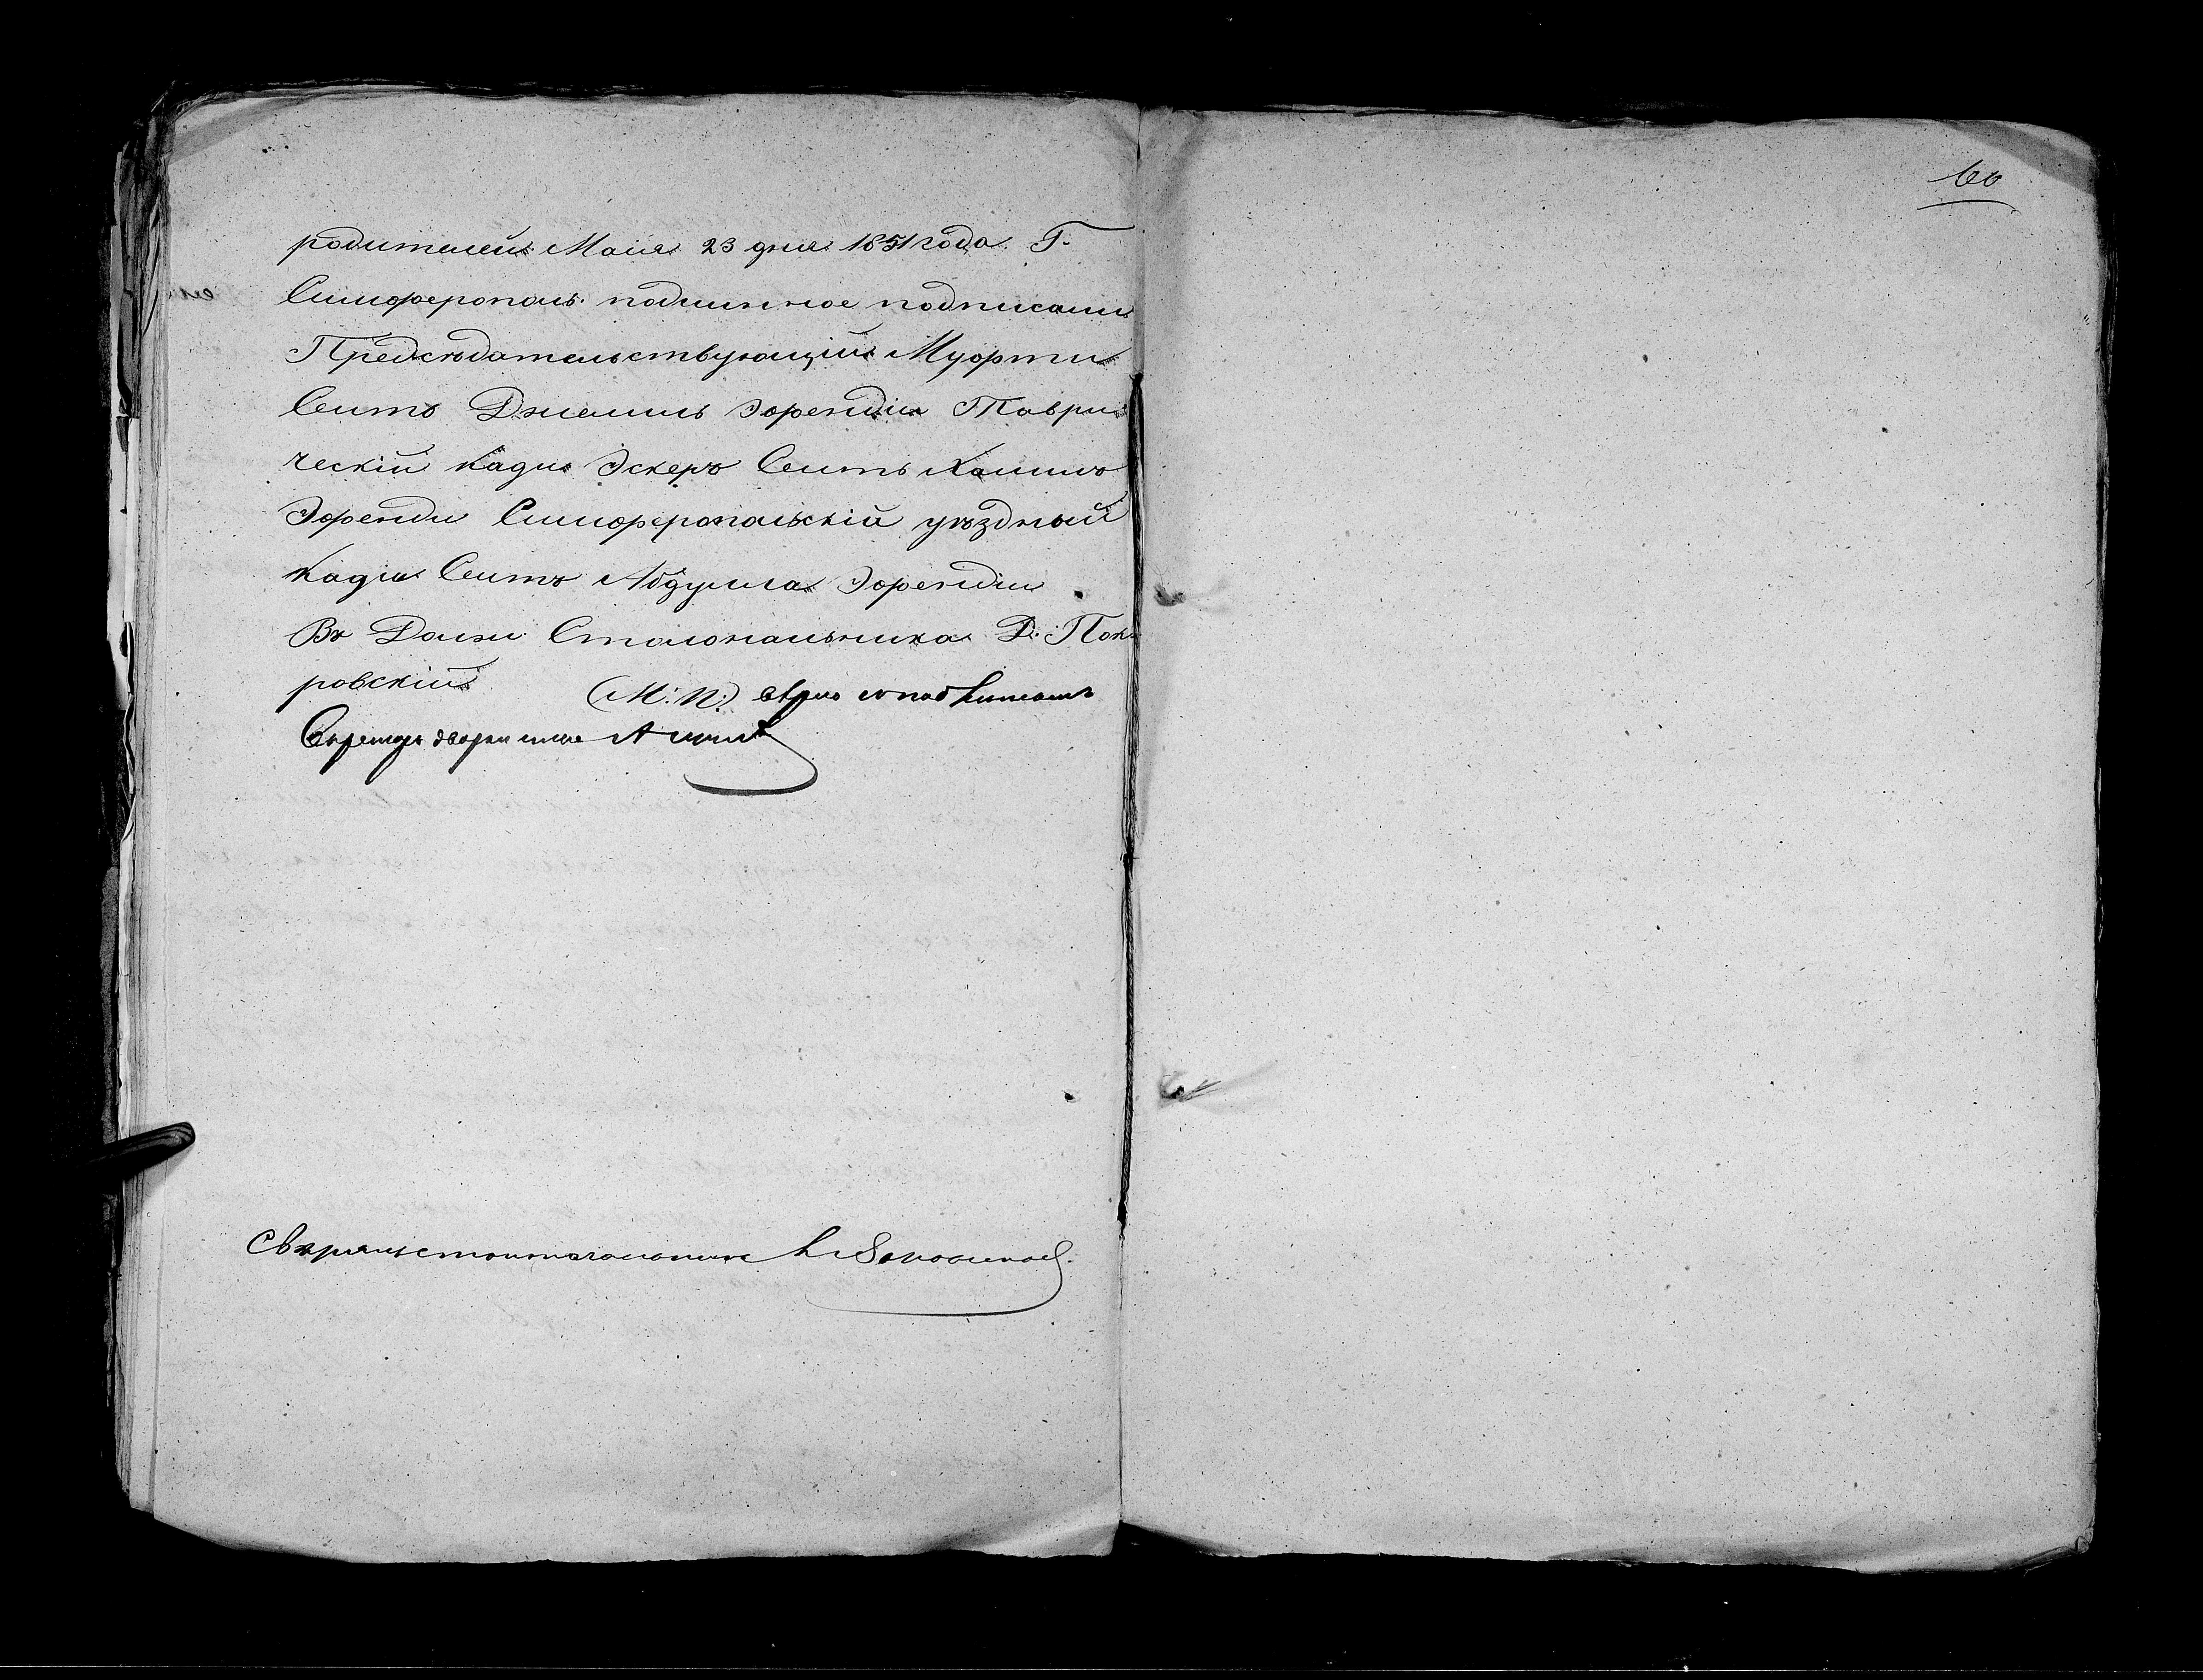 родителей Маія 23 дня 1851 года Г.
Симферополь. подлинное подписали
Председательствующій Муфти
Сеитъ Джелиль Эфенди Таври
ческій Кади Эскеръ Сеитъ Халиль
Эфенди Симферопольскій уѣздный
Кади Сеитъ Абдулла Эфенди
Въ Долж: Столоначальника Д. Пок
ровскій (М: П:) вѣрно с подлиннымъ
Секретарь дворянства
Свѣрялъ столоначальникъ
60